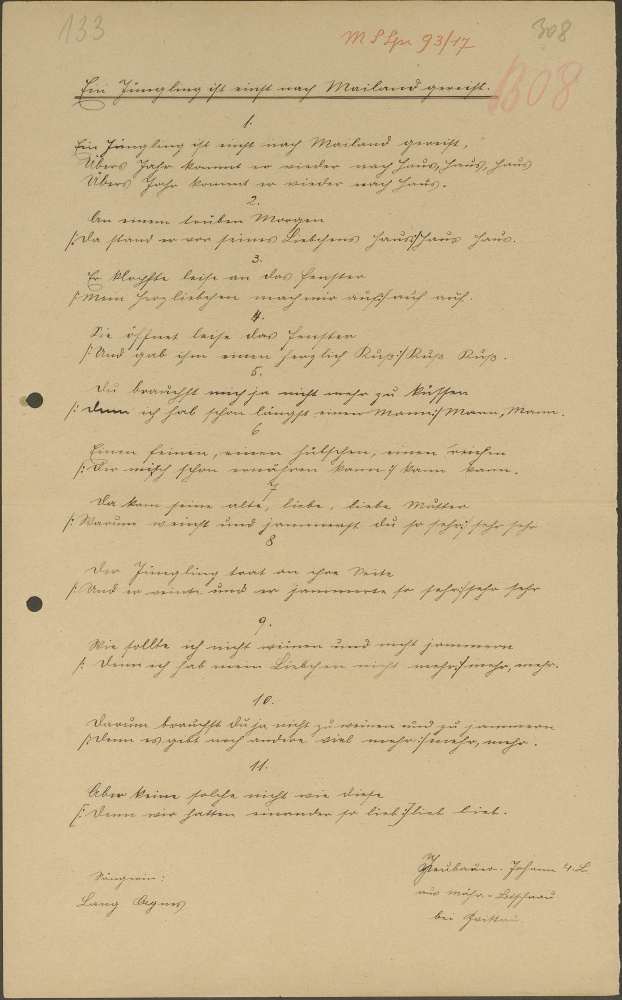 133
M S Spr 93/17
308
308
Ein Jüngling ist einst nach Mailand gereist.
1.
Ein Jüngling ist einst nach Mailand gereist,
Übers Jahr kommt er wieder nach Haus, Haus, Haus
Übers Jahr kommt er wieder nach Haus.
2.
An einem trüben Morgen
/: Da stand er vor seines Liebchens Haus :/ Haus Haus.
3.
Er klopfte leise an das Fenster
/: Mein Herzliebchen mach mir auf :/ auf auf.
4.
Sie öffnet leise das Fenster
/: Und gab ihm einen herzlich Kuß :/ Kuß Kuß.
5.
Du brauchst mich ja nicht mehr zu küssen
/: Denn ich hab schon längst einen Mann :/ Mann, Mann.
6
Einen feinen, einen hübschen, einen reichen
/: Der mich schon ernähren kann :/ kann kann.
7
Da kam seine alte, liebe, liebe Mutter
/: Warum weinst und jammerst du so sehr :/ sehr sehr
8
Der Jüngling trat an ihre Seite
/: Und er weinte und er jammerte so sehr :/ sehr sehr
9.
Wie sollte ich nicht weinen und nicht jammern
/: Denn ich hab mein Liebchen nicht mehr :/ mehr, mehr.
10.
Darum brauchst Du ja nicht zu weinen und zu jammern
/: Denn es gibt noch andere viel mehr :/ mehr, mehr.
11.
Aber keine solche nicht wie diese
/: Denn wir hatten einander so lieb :/ lieb lieb.
Sängerin:
Lang Agnes
Neubauer Johann 4. L
aus Mähr.-Lotschnau
bei Zwittau.